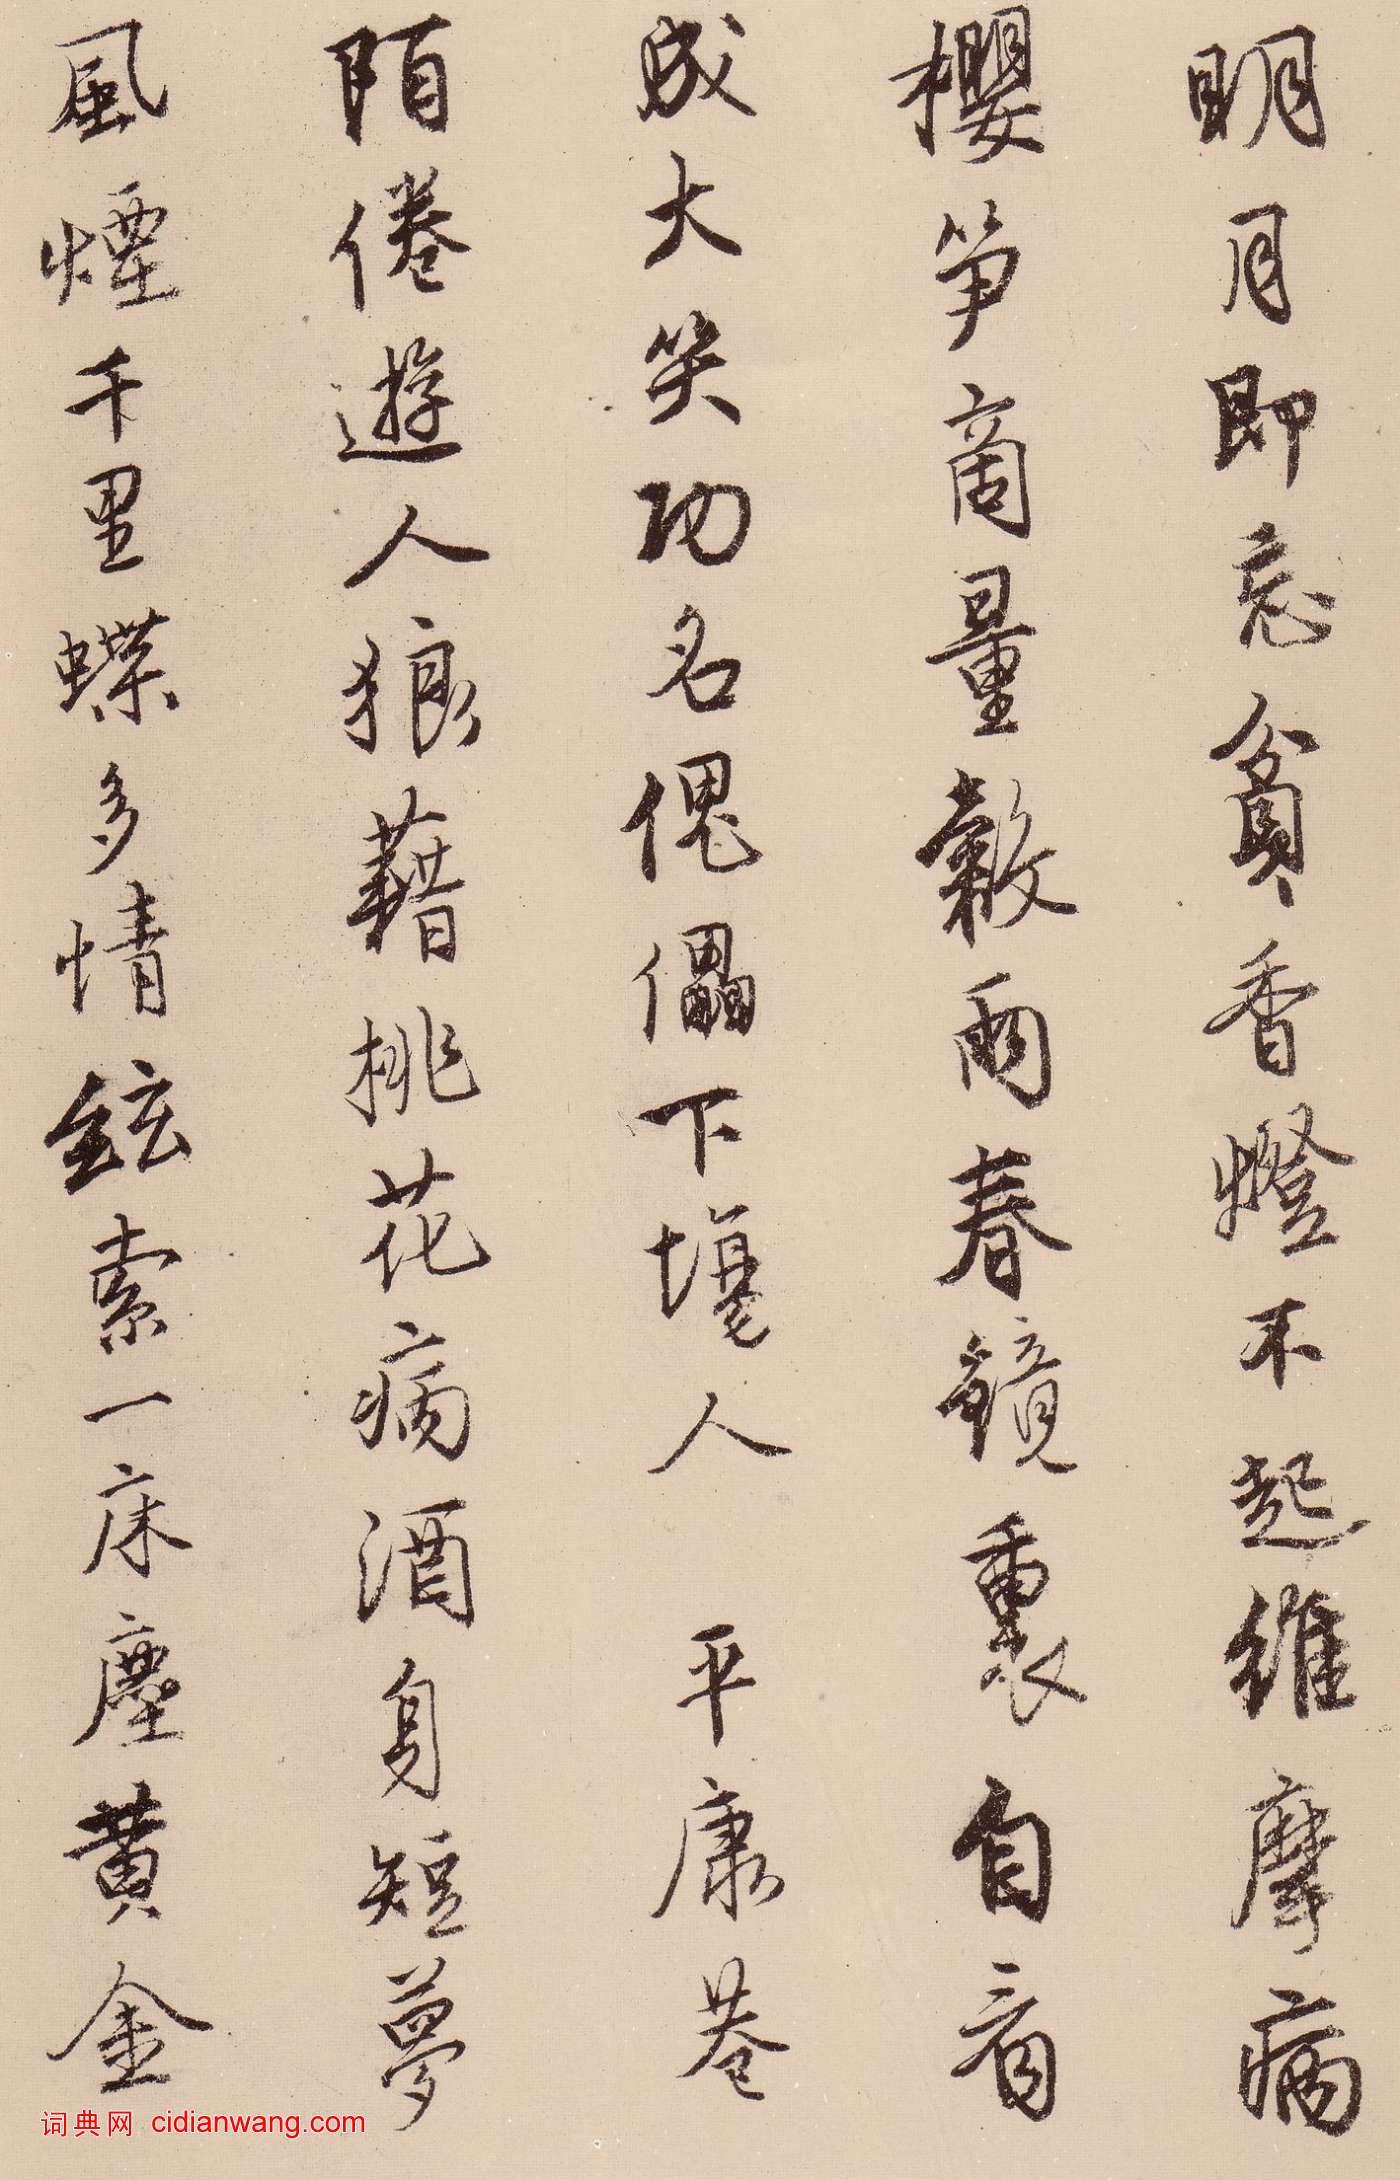 明月即忘貧香燈不起維摩病
櫻筍商量穀雨春鏡裏自看
成大笑功名傀儡下場人 平康巷
陌倦遊人狼藉桃花病酒身短夢
風煙千里蝶多情絃索一床塵黃金
词典网 cidianwang.com